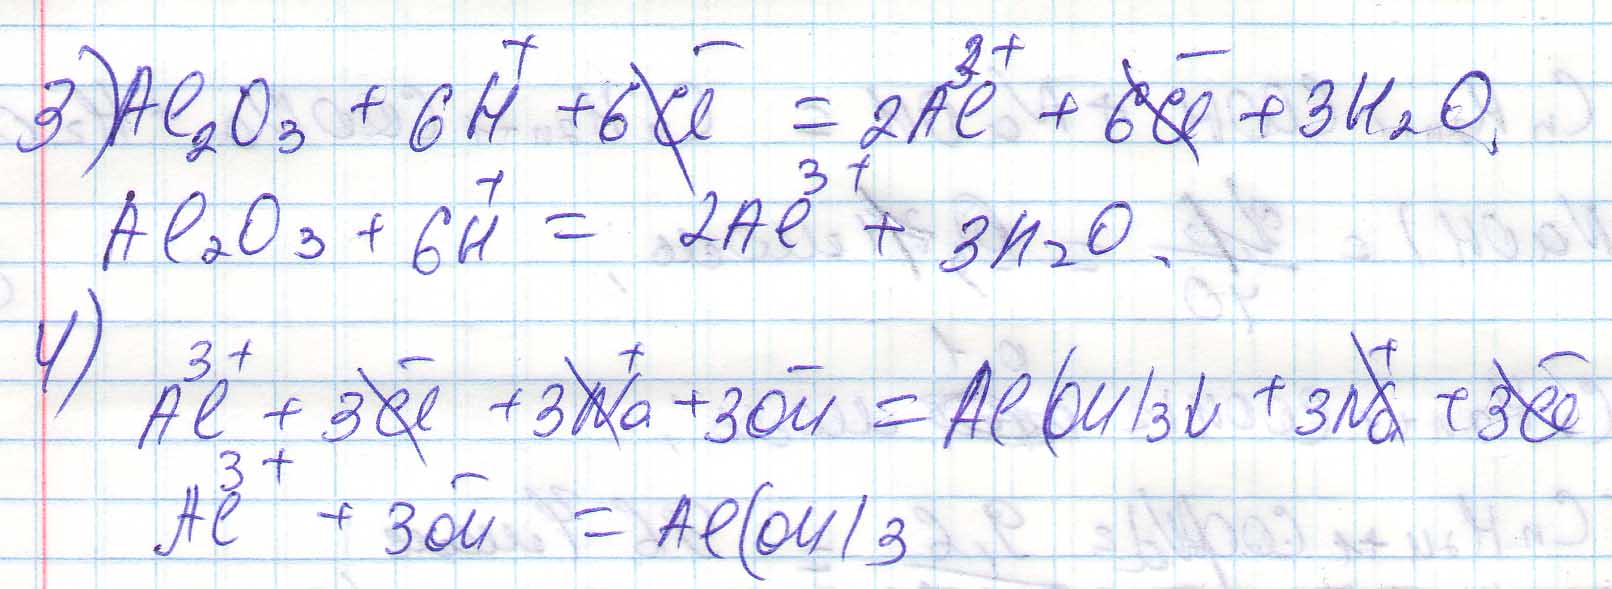 3) Al₂O₃ + 6H⁺ + 6Cl⁻ = 2Al³⁺ + 6Cl⁻ + 3H₂O.
Al₂O₃ + 6H⁺ = 2Al³⁺ + 3H₂O.
4)
Al³⁺ + 3Cl⁻ + 3Na⁺ + 3OH⁻ = Al(OH)₃↓ + 3Na⁺ + 3Cl⁻
Al³⁺ + 3OH⁻ = Al(OH)₃